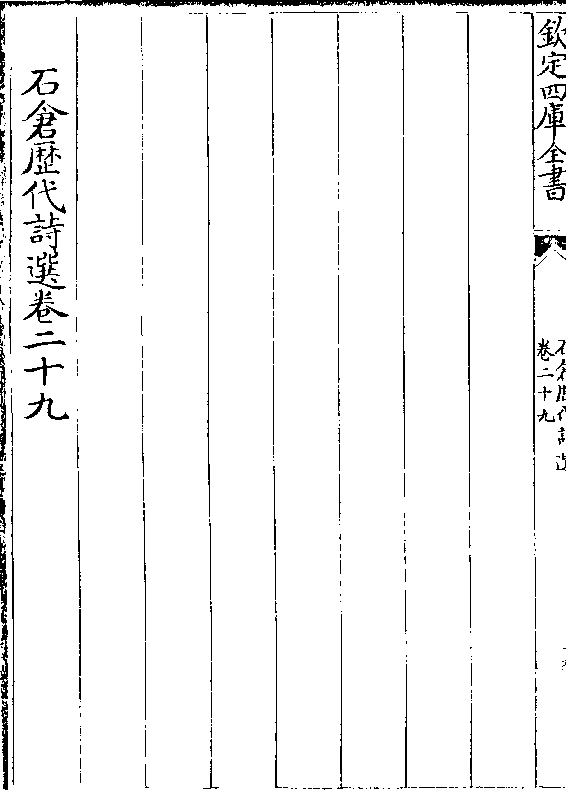 欽定四庫全書
石倉歷代詩選
卷二十九
石倉歷代詩選卷二十九